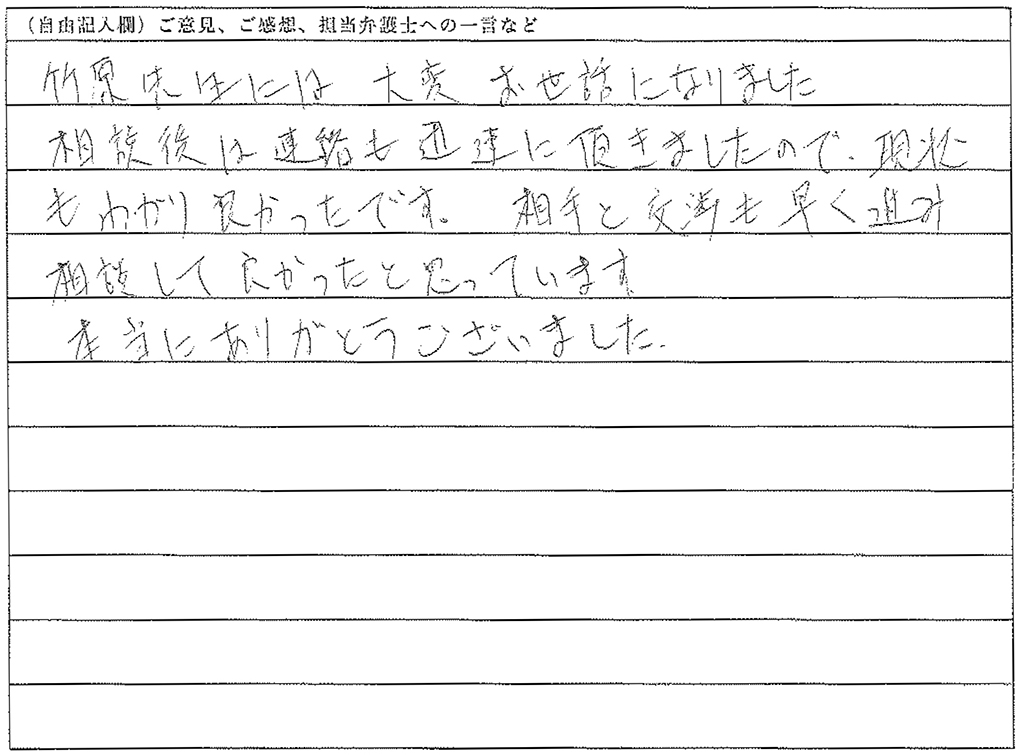 (自由記入欄)ご意見、ご感想、担当弁護士への一言など
竹原先生には 大変 お世話になりました
相談後は連絡も迅速に頂きましたので、現状
もわかり良かったです。 相手と交渉も早く進み
相談して良かったと思っています
本当にありがとうございました.